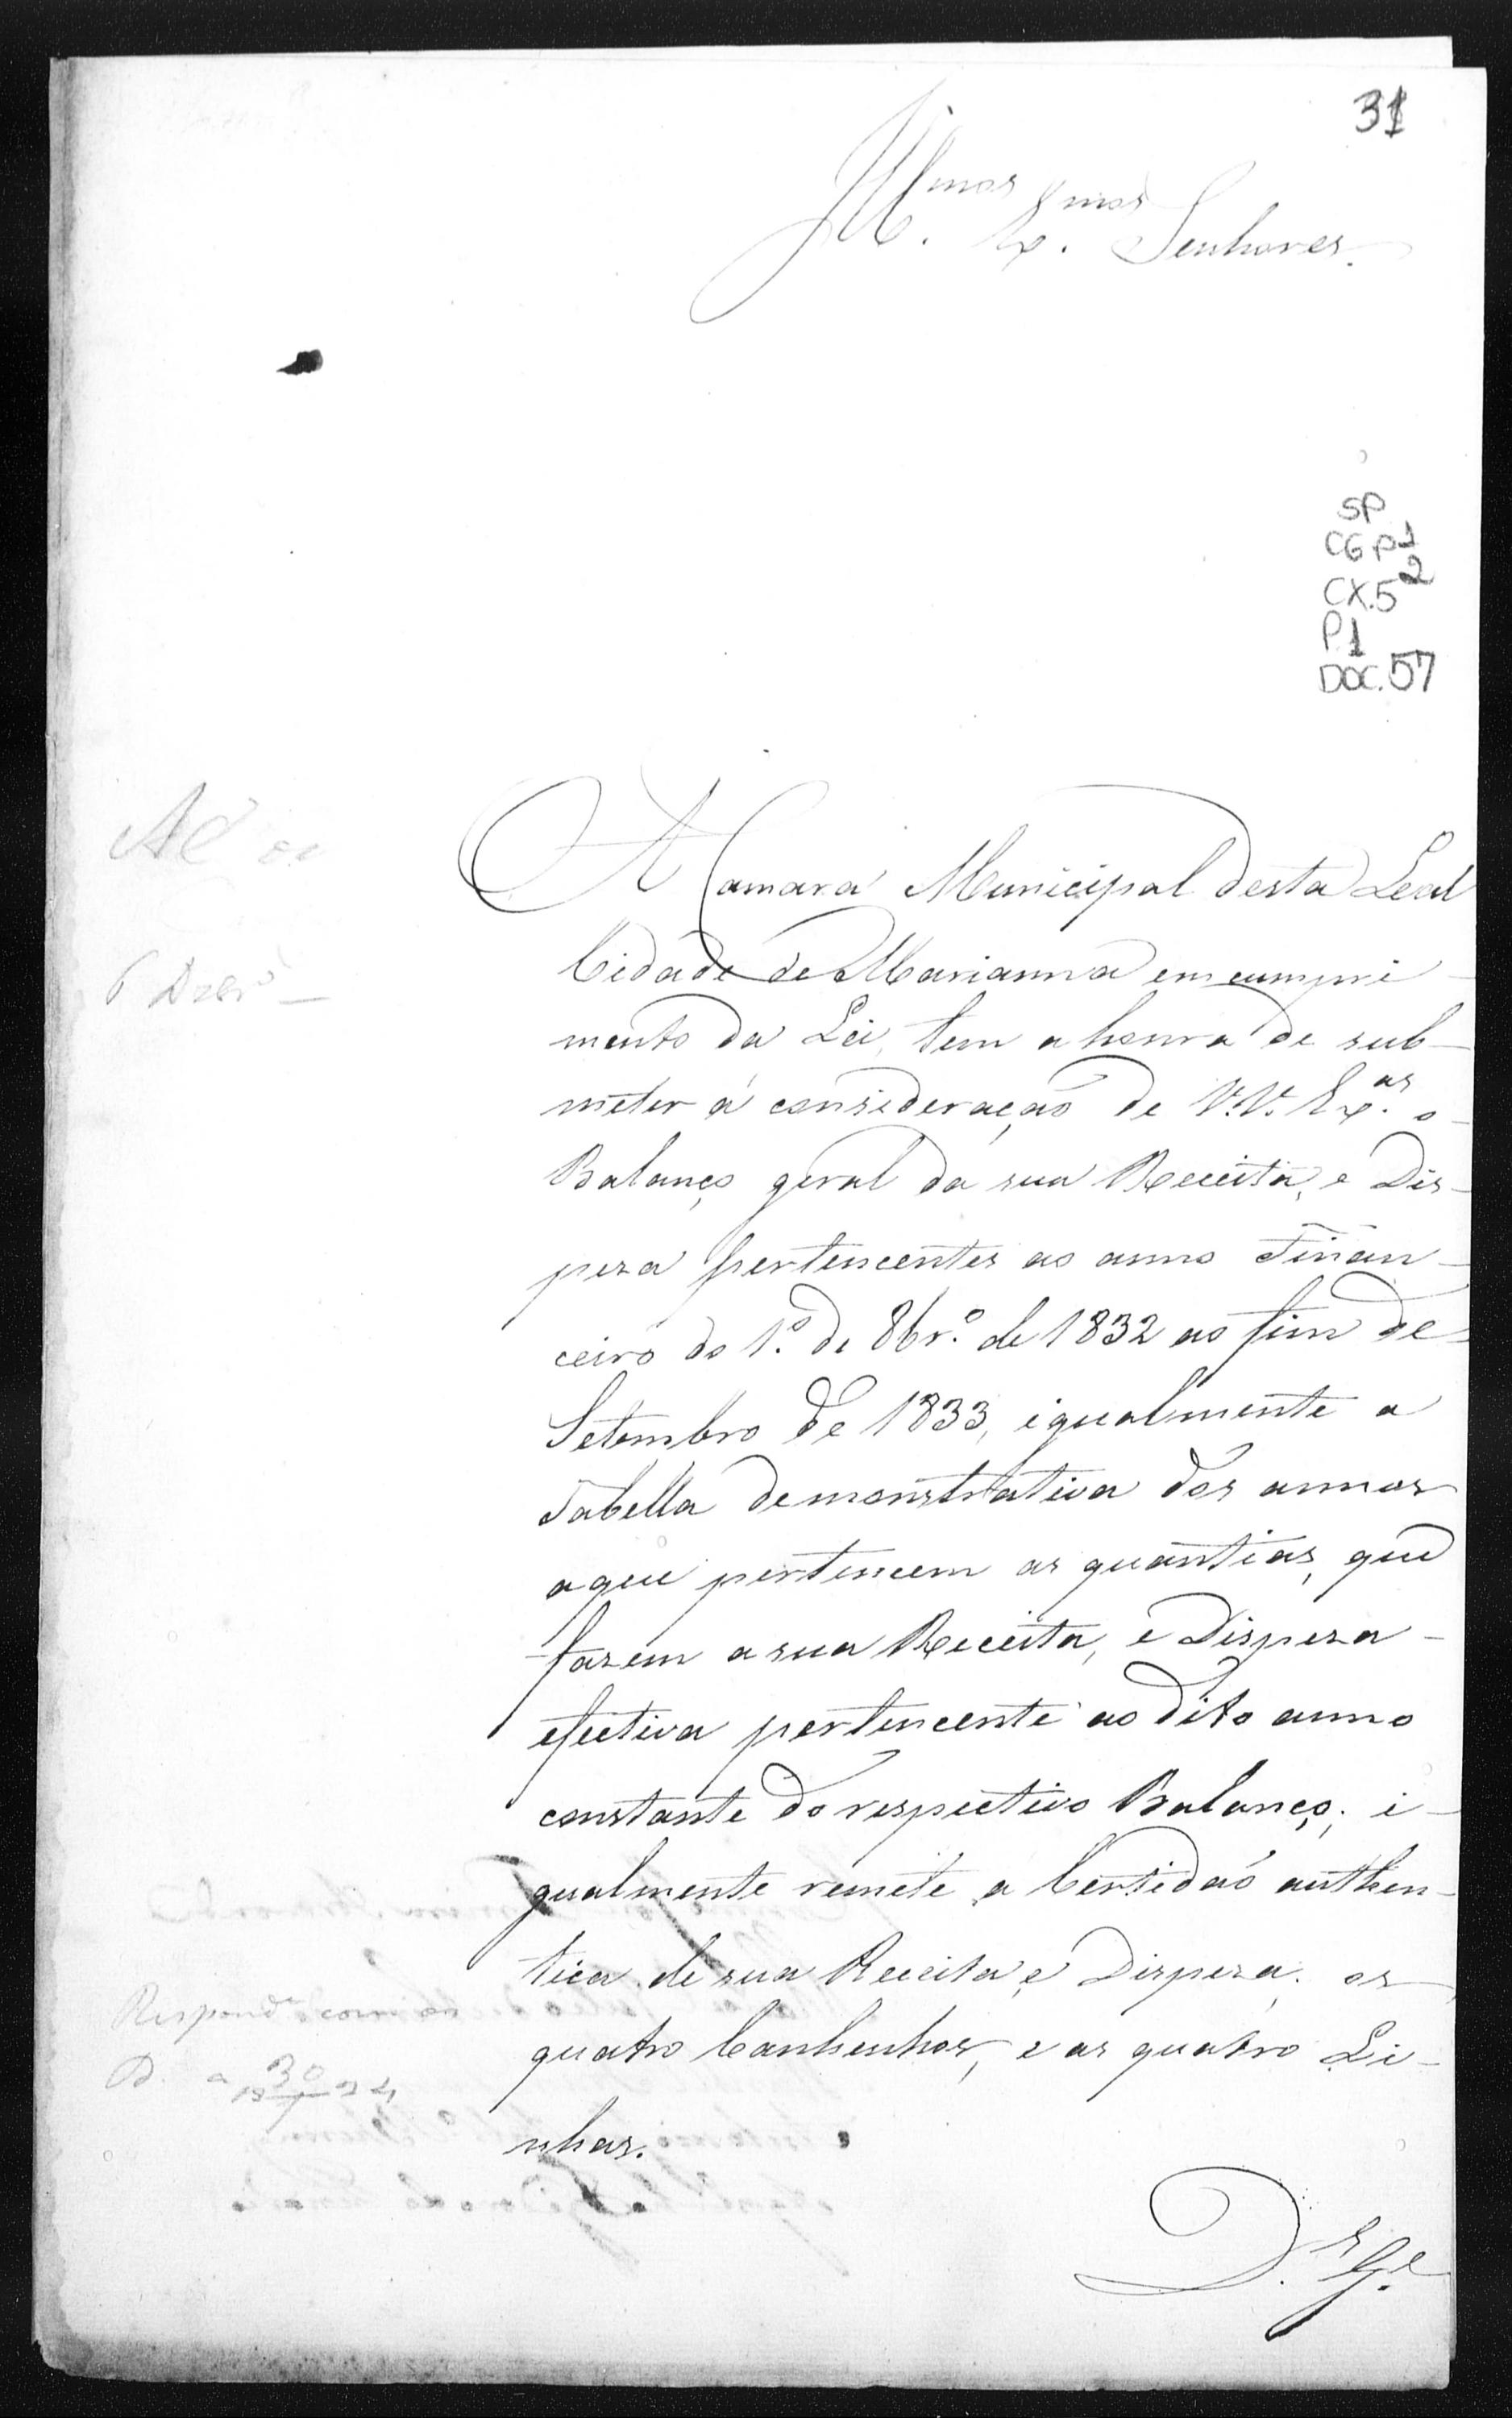 31
Ill.mos Ex.mos Senhores.
SP
CGP1
CX.52
P1
DOC.57
A Camara Municipal desta Leal
Cidade de Marianna em cumpri-
mento da Lei, tem a honra de sub-
meter á consideração de V.V. Ex.as o
Balanço geral da sua Receita, e Dis-
peza pertencentes ao anno Finan-
ceiro do 1.º de 8br.º de 1832 ao fim de
Setembro de 1833, igualmente a
Tabella demonstrativa dos annos
a que pertencem as quantias, que
fazem a sua Receita, e Dispeza
efectiva pertencente ao dito anno
constante do respectivo Balanço; i-
gualmente remete a Certidaõ authen-
tica de sua Receita, e Dispeza, os
quatro Canhenhos, e as quatro Li-
nhas.
6 Dzbr.º
Respond.e com os
D.s G.e